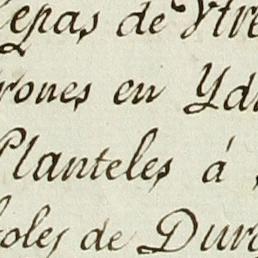 epas de Ytre
rones en Yd
Planteles á
oles de Dur